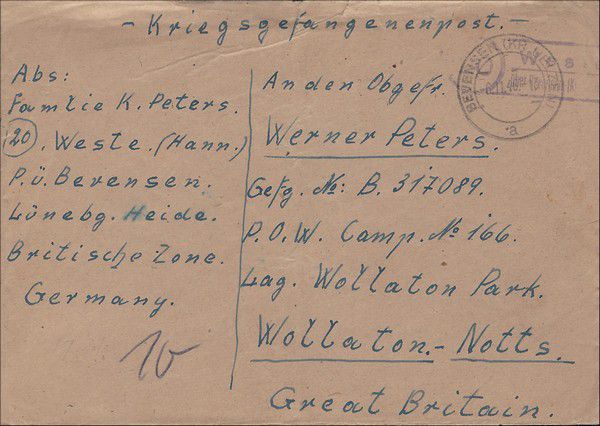 - Kriegsgefangenenpost. -
Abs:
Familie K. Peters.
(20). Weste. (Hann.)
P. ü. Bevensen.
Lünebg. Heide.
Britische Zone.
Germany.
10
An den Obgefr.
Werner Peters.
Gefg. No: B. 317089.
P.O.W. Camp. No 166.
Lag. Wollaton Park.
Wollaton. - Notts.
Great Britain.
BEVENSEN
a